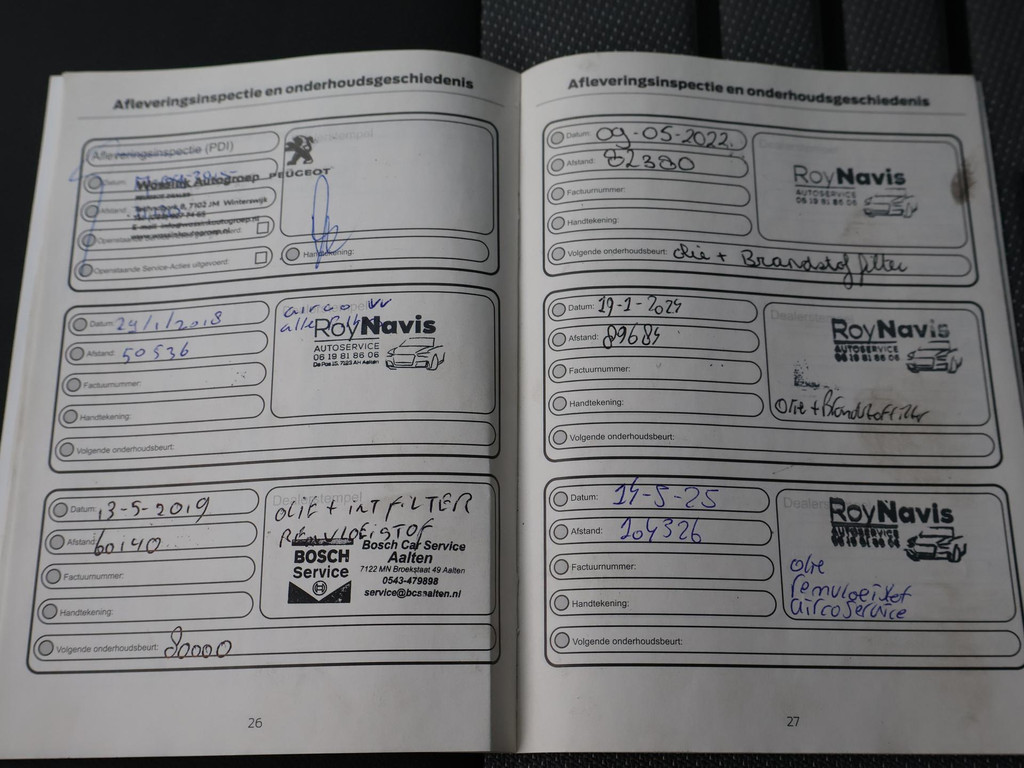 Afleveringsinspectie en onderhoudsgeschiedenis
Afleveringsinspectie (PDI)
Datum:
Wossink Autogroep PEUGEOT
Afstand:
7102 JM Winterswijk
Openstaande Service-Acties uitgevoerd:
Handtekening:
Datum: 24/1/2018
airco vv
RoyNavis
AUTOSERVICE
06 19 81 86 06
Afstand: 50536
Factuurnummer:
Handtekening:
Volgende onderhoudsbeurt:
Dealerstempel
Datum: 13-5-2019
OLIE + INT FILTER
REMVLOEISTOF
Afstand: 60140
BOSCH
Service
Bosch Car Service
Aalten
7122 MN Broekstraat 49 Aalten
0543-479898
service@bcsaalten.nl
Factuurnummer:
Handtekening:
Volgende onderhoudsbeurt: 80000
26
Afleveringsinspectie en onderhoudsgeschiedenis
Datum: 09-05-2022
Afstand: 82380
RoyNavis
AUTOSERVICE
06 19 81 86 06
Factuurnummer:
Handtekening:
Volgende onderhoudsbeurt: olie + Brandstoffilter
Datum: 19-1-2024
Afstand: 89684
RoyNavis
AUTOSERVICE
06 19 81 86 06
Factuurnummer:
Handtekening:
Olie + Brandstoffilter
Volgende onderhoudsbeurt:
Datum: 14-5-25
Afstand: 104326
RoyNavis
AUTOSERVICE
06 19 81 86 06
Factuurnummer:
Handtekening:
olie
remvloeistof
aircoservice
Volgende onderhoudsbeurt:
27